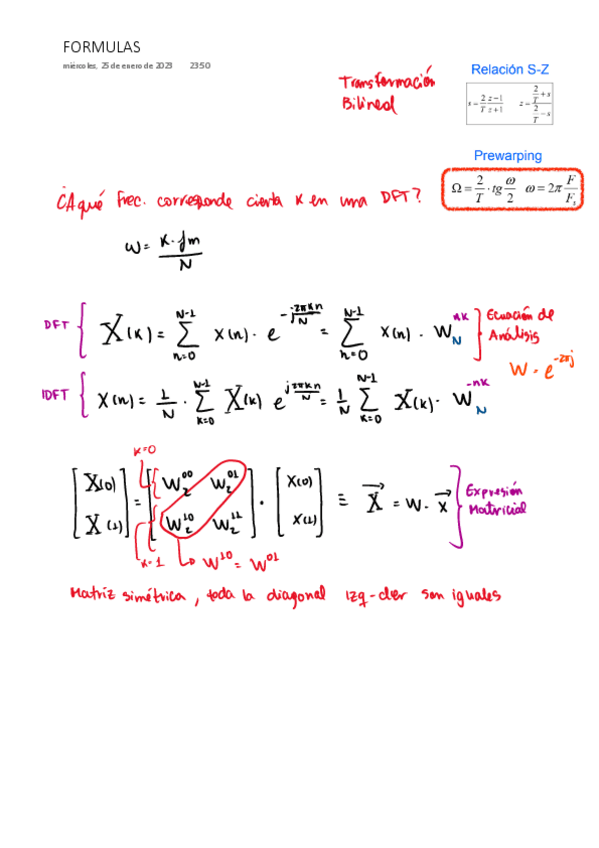 FORMULAS
miércoles, 25 de enero de 2023 23:50
Transformación
Bilineal
Relación S-Z
s = 2/T (z-1)/(z+1) z = (2/T + s)/(2/T - s)
Prewarping
Ω = 2/T · tg ω/2 ω = 2π F/Fs
¿A qué frec. corresponde cierta K en una DFT?
ω = K·fm/N
DFT { X(K) = Σ_{n=0}^{N-1} x(n) · e^{-j2πKn/N} = Σ_{n=0}^{N-1} x(n) · W_N^{nK} } Ecuación de Análisis
W = e^{-2πj}
IDFT { x(n) = 1/N · Σ_{K=0}^{N-1} X(K) e^{j2πKn/N} = 1/N Σ_{K=0}^{N-1} X(K) · W_N^{-nK}
K=0
[X(0) X(1)] = [W_2^{00} W_2^{01} W_2^{10} W_2^{11}] · [X(0) X(1)] ≡ X = W · x } Expresión Matricial
K=1 → W^{10} = W^{01}
Matriz simétrica, toda la diagonal izq-der son iguales